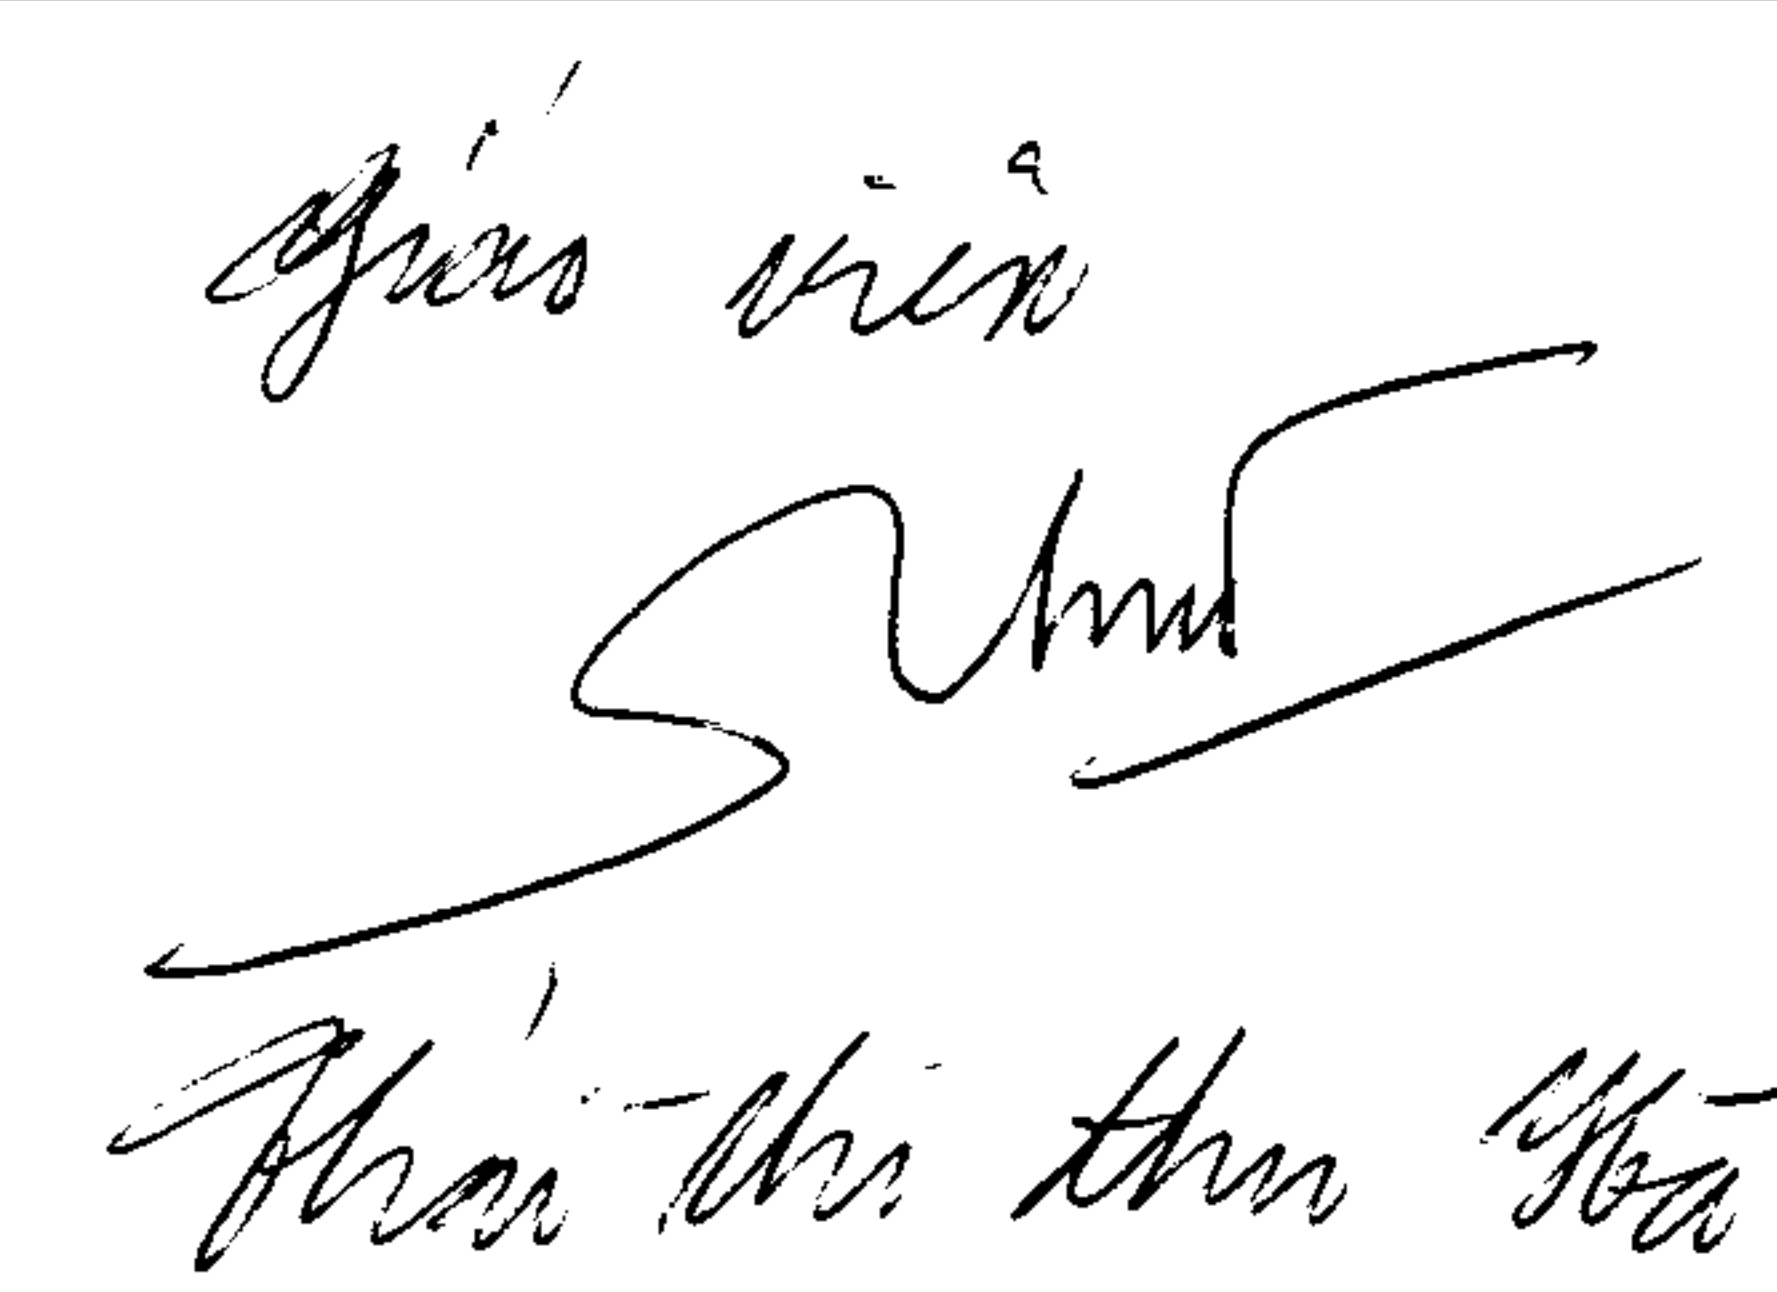 Giáo viên
Thái Thị Thu Hà